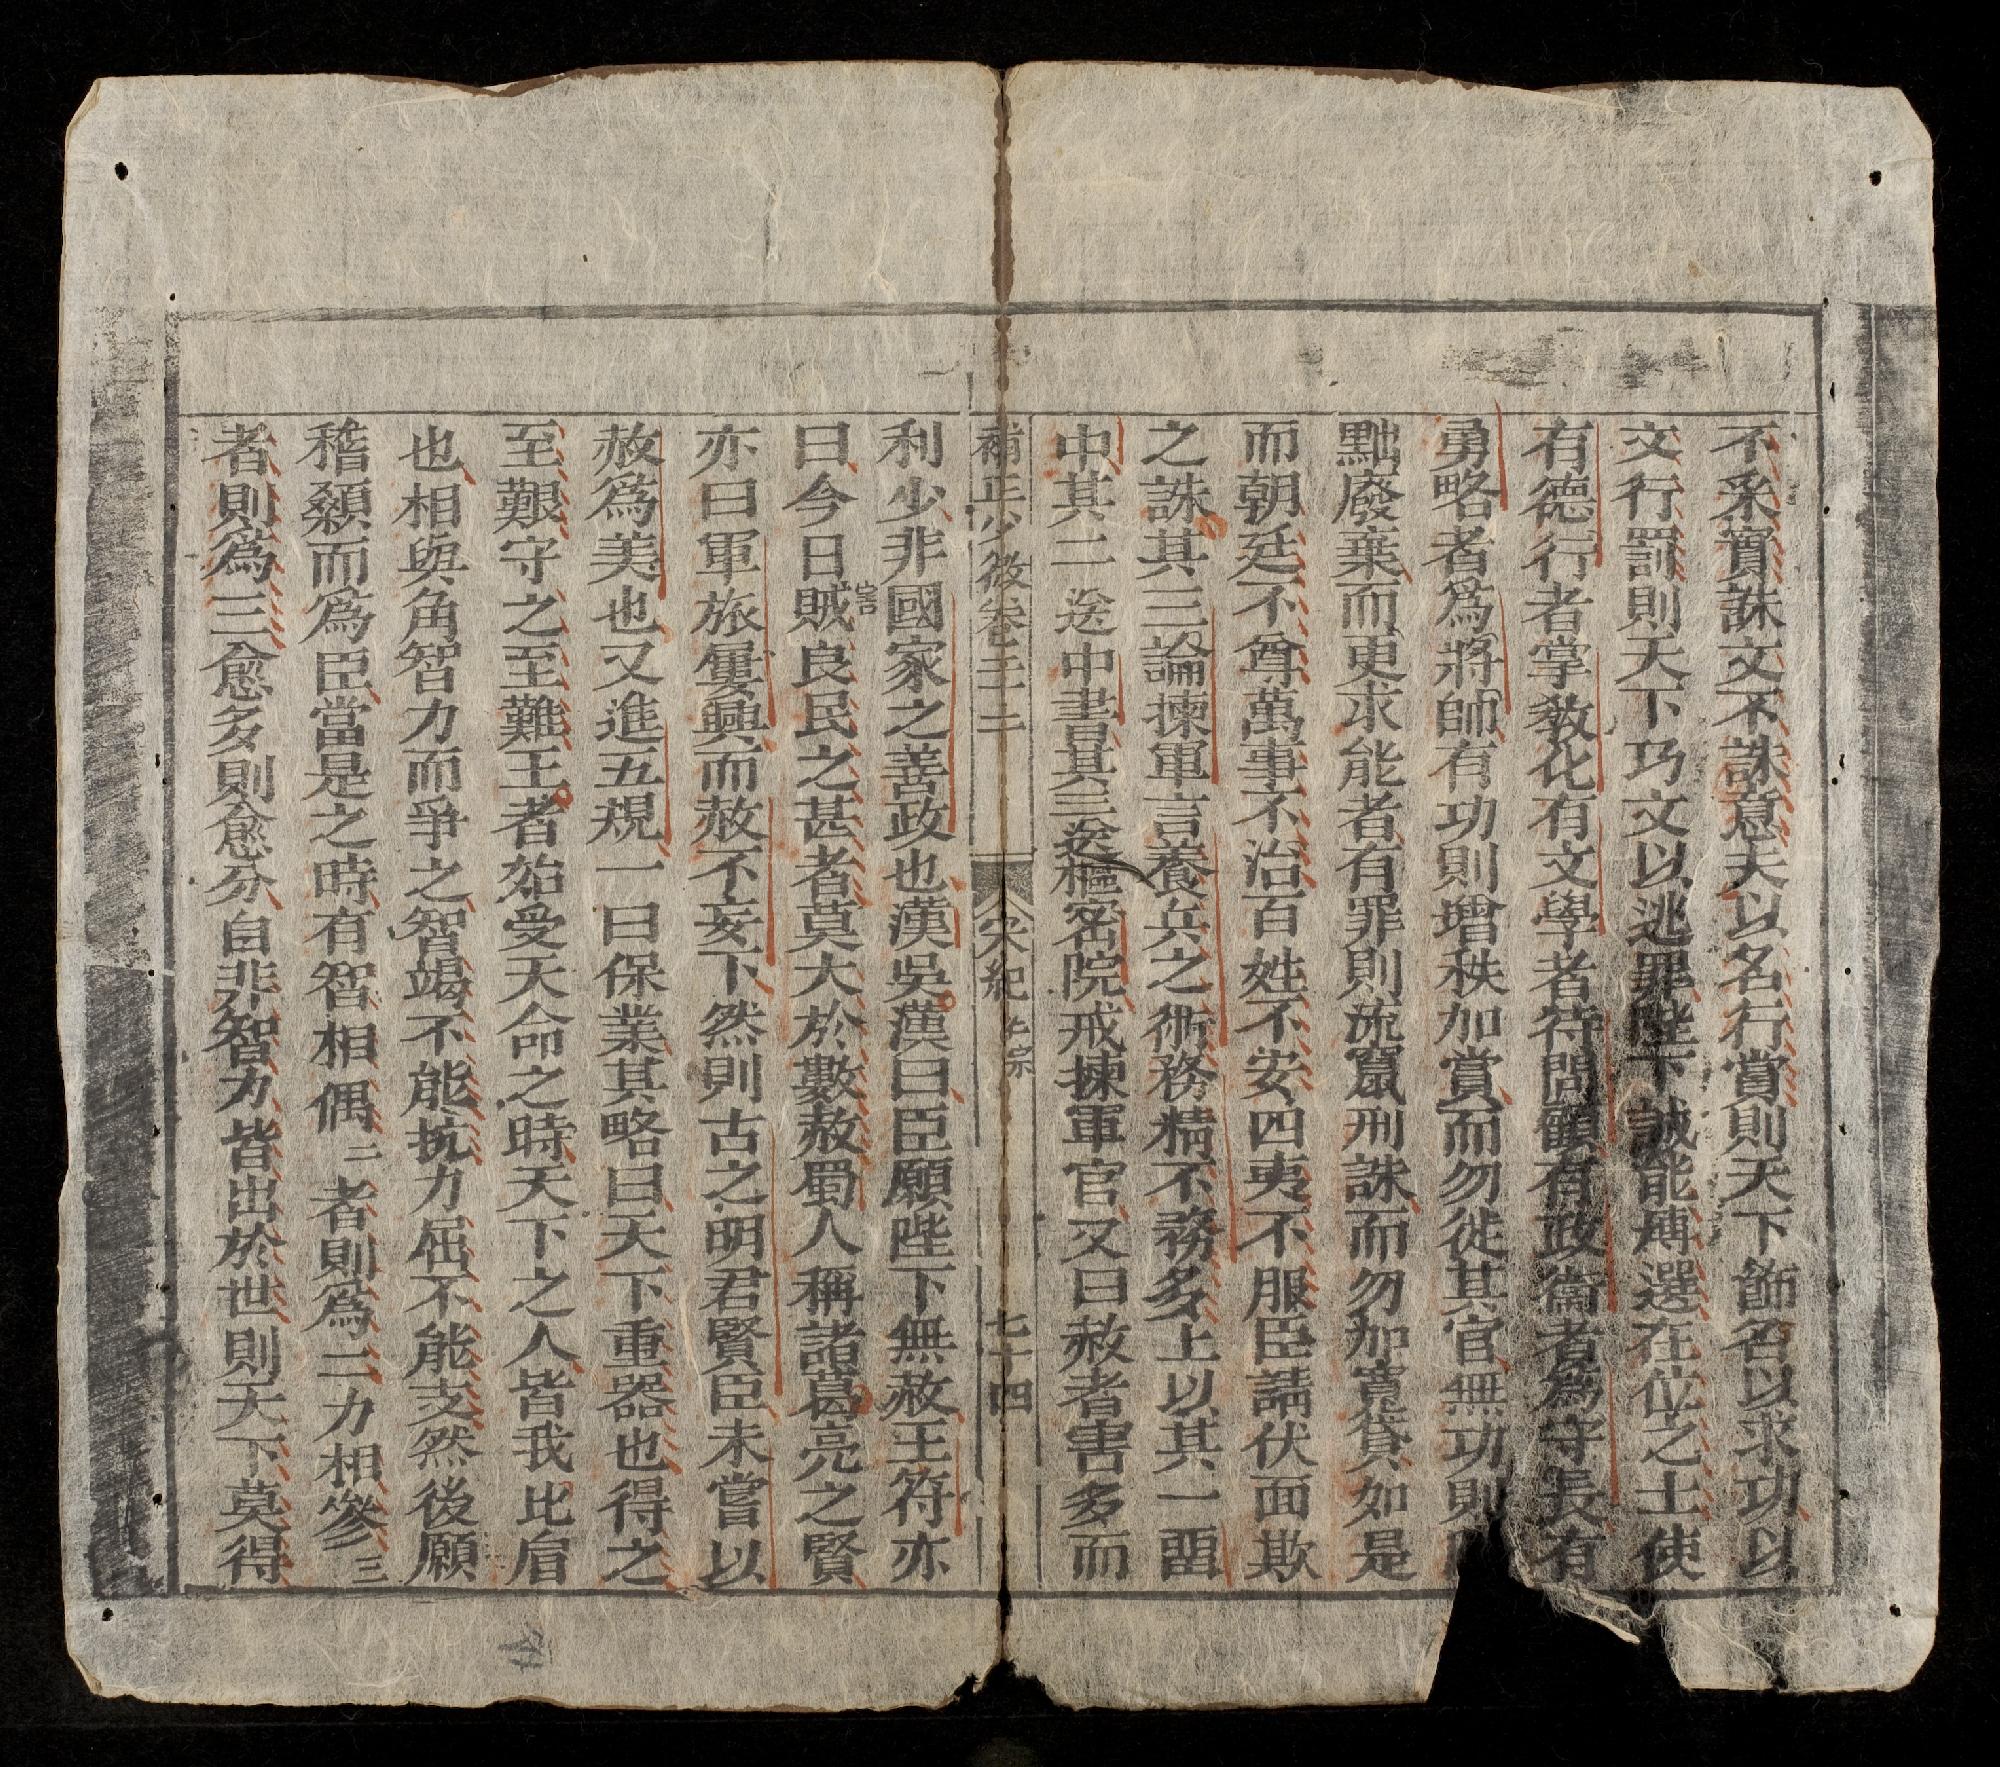 不采實誅文不誅意夫以名行賞則天下飾名以求功以
文行罰則天下巧文以逃罪陛下誠能慱選在位之士使
有德行者掌敎化有文學者待顧問有政術者爲守長有
勇略者爲將帥有功則增秩加賞而勿徙其官無功則
黜廢棄而更求能者有罪則流竄刑誅而勿加寬貸如是
而朝廷不尊萬事不治百姓不安四夷不服臣請伏面欺
之誅其三論揀軍言養兵之術務精不務多上以其一畱
中其二送中書其三送樞密院戒揀軍官又曰赦者害多而
補正少微卷二十二 宋紀 仁宗 七十四
利少非國家之善政也漢吳漢曰臣願陛下無赦王符亦
曰今日賊良民之甚者莫大於數赦蜀人稱諸葛亮之賢
害
亦曰軍旅屢興而赦不妄下然則古之明君賢臣未嘗以
赦爲美也又進五規一曰保業其略曰天下重器也得之
至艱守之至難王者始受天命之時天下之人皆我比肩
也相與角智力而爭之智竭不能抗力屈不能支然後願
稽顙而爲臣當是之時有智相偶二者則爲二力相參三
者則爲三愈多則愈分自非智力皆出於世則天下莫得